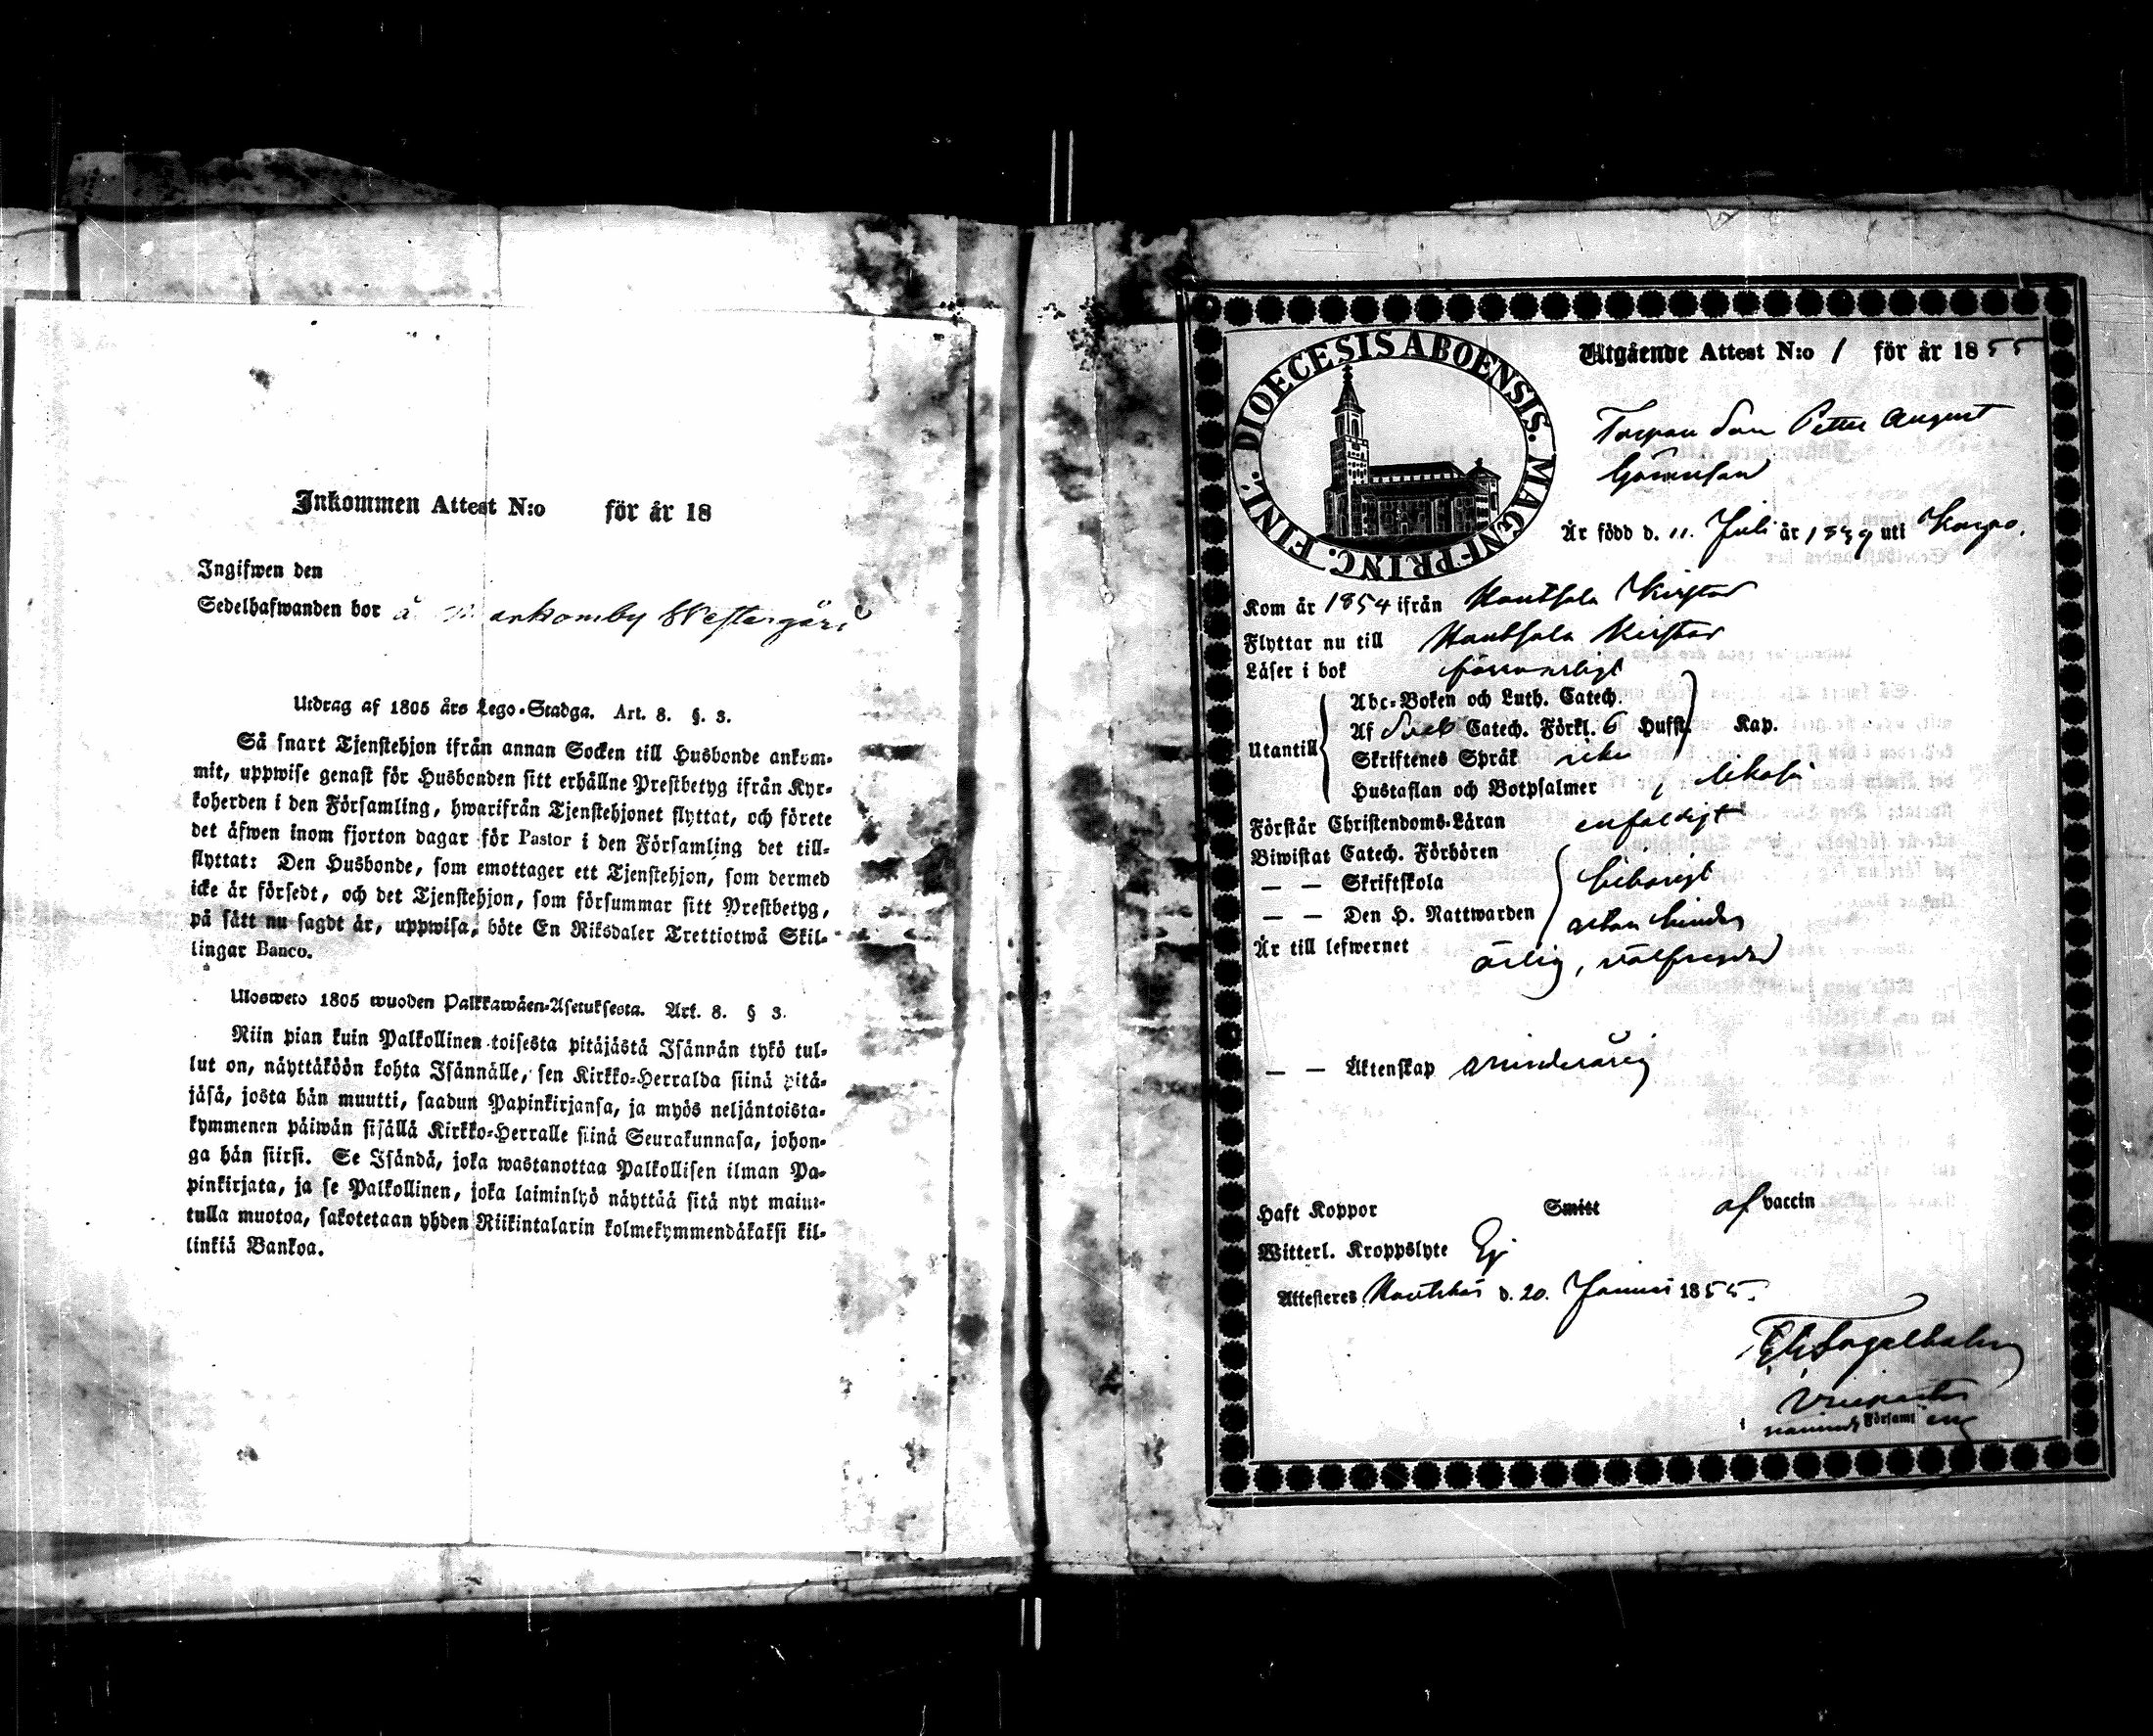 Inkommen Attest N:o för år 18
Ingifwen den
Sedelhafwanden bor å Westergård
Utdrag af 1805 års Lego-Stadga. Art. 8. §. 3.
Så snart Tjenstehjon ifrån annan Socken till Husbonde ankom-
mit, uppwise genast för Husbonden sitt erhållne Prestbetyg ifrån Kyr-
koherden i den Församling, hwarifrån Tjenstehjonet flyttat, och förete
det äfwen inom fjorton dagar för Pastor i den Församling det till-
flyttat: Den Husbonde, som emottager ett Tjenstehjon, som dermed
icke är försedt, och det Tjenstehjon, som försummar sitt Prestbetyg,
på sätt nu sagdt är, uppwisa, böte En Riksdaler Trettiotwå Skil-
lingar Banco.
Ulosweto 1805 wuoden Palkkawäen-Asetuksesta. Art. 8. § 3.
Niin pian kuin Palkollinen toisesta pitäjästä Isännän tykö tul-
lut on, näyttäköön kohta Isännälle, sen Kirkko-Herralda siinä pitä-
jäsä, josta hän muutti, saadun Papinkirjansa, ja myös neljäntoista-
kymmenen päiwän sisällä Kirkko-Herralle siinä Seurakunnasa, johon-
ga hän siirsi. Se Isändä, joka wastanottaa Palkollisen ilman Pa-
pinkirjata, ja se Palkollinen, joka laiminlyö näyttää sitä nyt mainit-
tulla muotoa, sakotetaan yhden Riikintalarin kolmekymmendäkaksi kil-
linkiä Bankoa.
DIOECESIS ABOENSIS. MAGNI PRINC. FINL.
Utgående Attest N:o 1 för år 1855
Torpare Son Petter August
Är född d. 11. Juli år 1839 uti Korpo.
Kom år 1854 ifrån Houtsala
Flyttar nu till Houtsala
Läser i bok försvarligt
Utantill
Abc-Boken och Luth. Catech.
Af Sveb Catech. Förkl. 6 Hufst. Kap.
Skriftenes Språk icke
Hustaflan och Botpsalmer likaså
Förstår Christendoms-Läran enfaldigt
Biwistat Catech. Förhören
— — Skriftskola behörigt
— — Den H. Nattwarden utan hinder
Är till lefwernet ärlig, välfrejdad
— — Äktenskap minderårig
Haft Koppor Smitt af vaccin
Witterl. Kroppslyte Ej
Attesteras Houtskär d. 20. Januari 1855.
Vicepastor
Församl